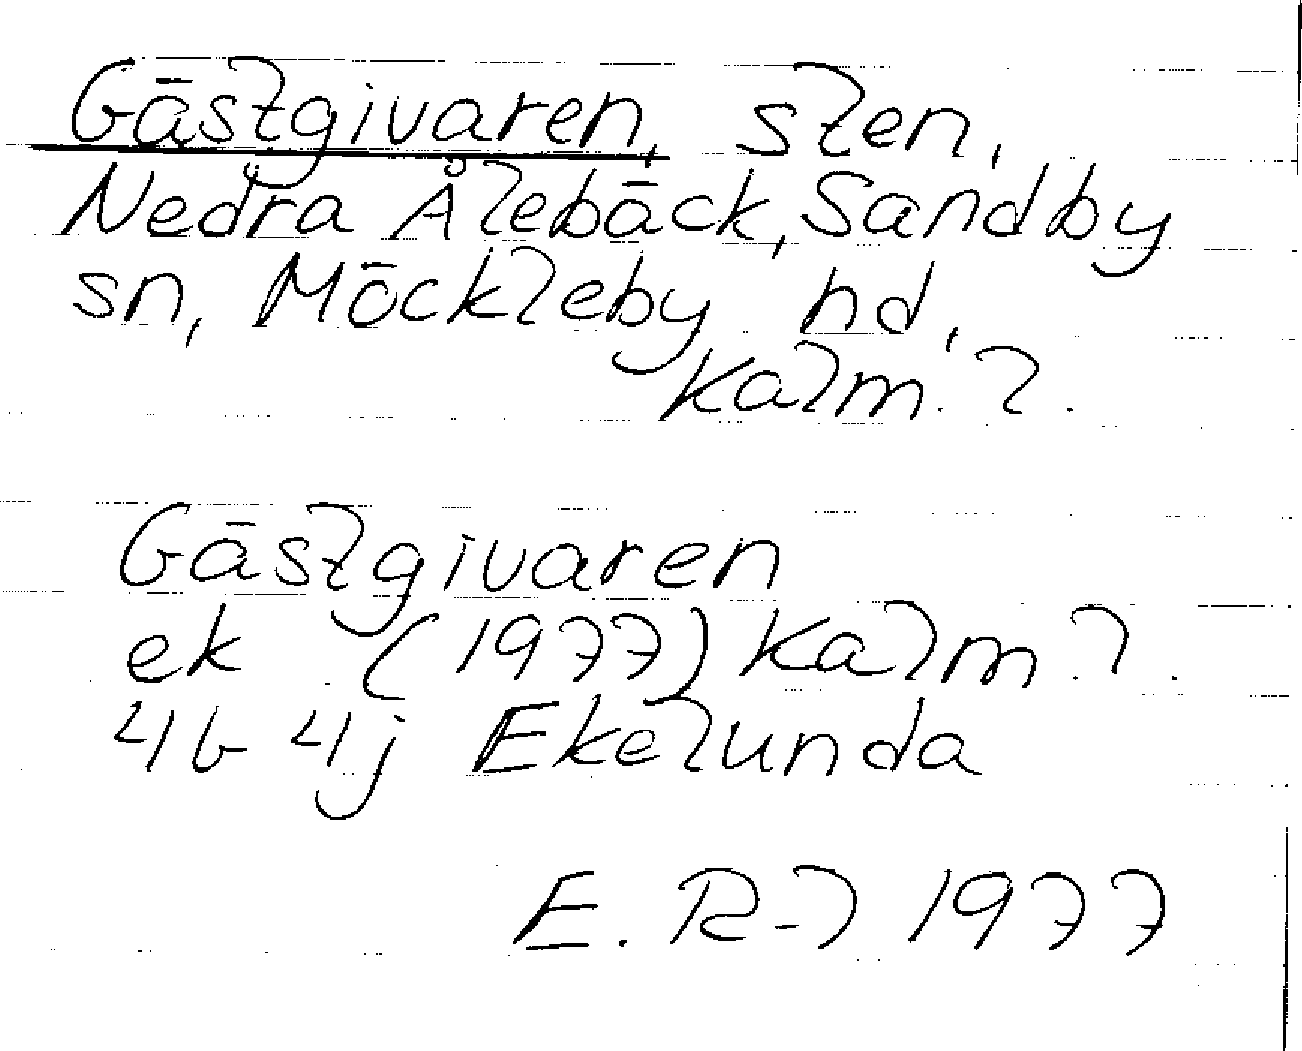 Gästgivaren, sten,
Nedra Ålebäck, Sandby
sn, Möckleby hd,
Kalm. l.
Gästgivaren
ek (1977) Kalm l.
4G 4j Ekelunda
E. R-l 1977